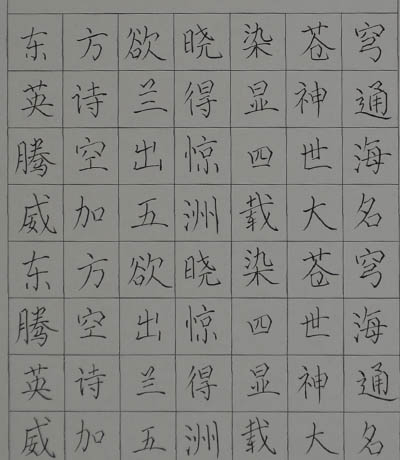 东方欲晓染苍穹
英诗兰得显神通
腾空出惊四世海
威加五洲载大名
东方欲晓染苍穹
腾空出惊四世海
英诗兰得显神通
威加五洲载大名